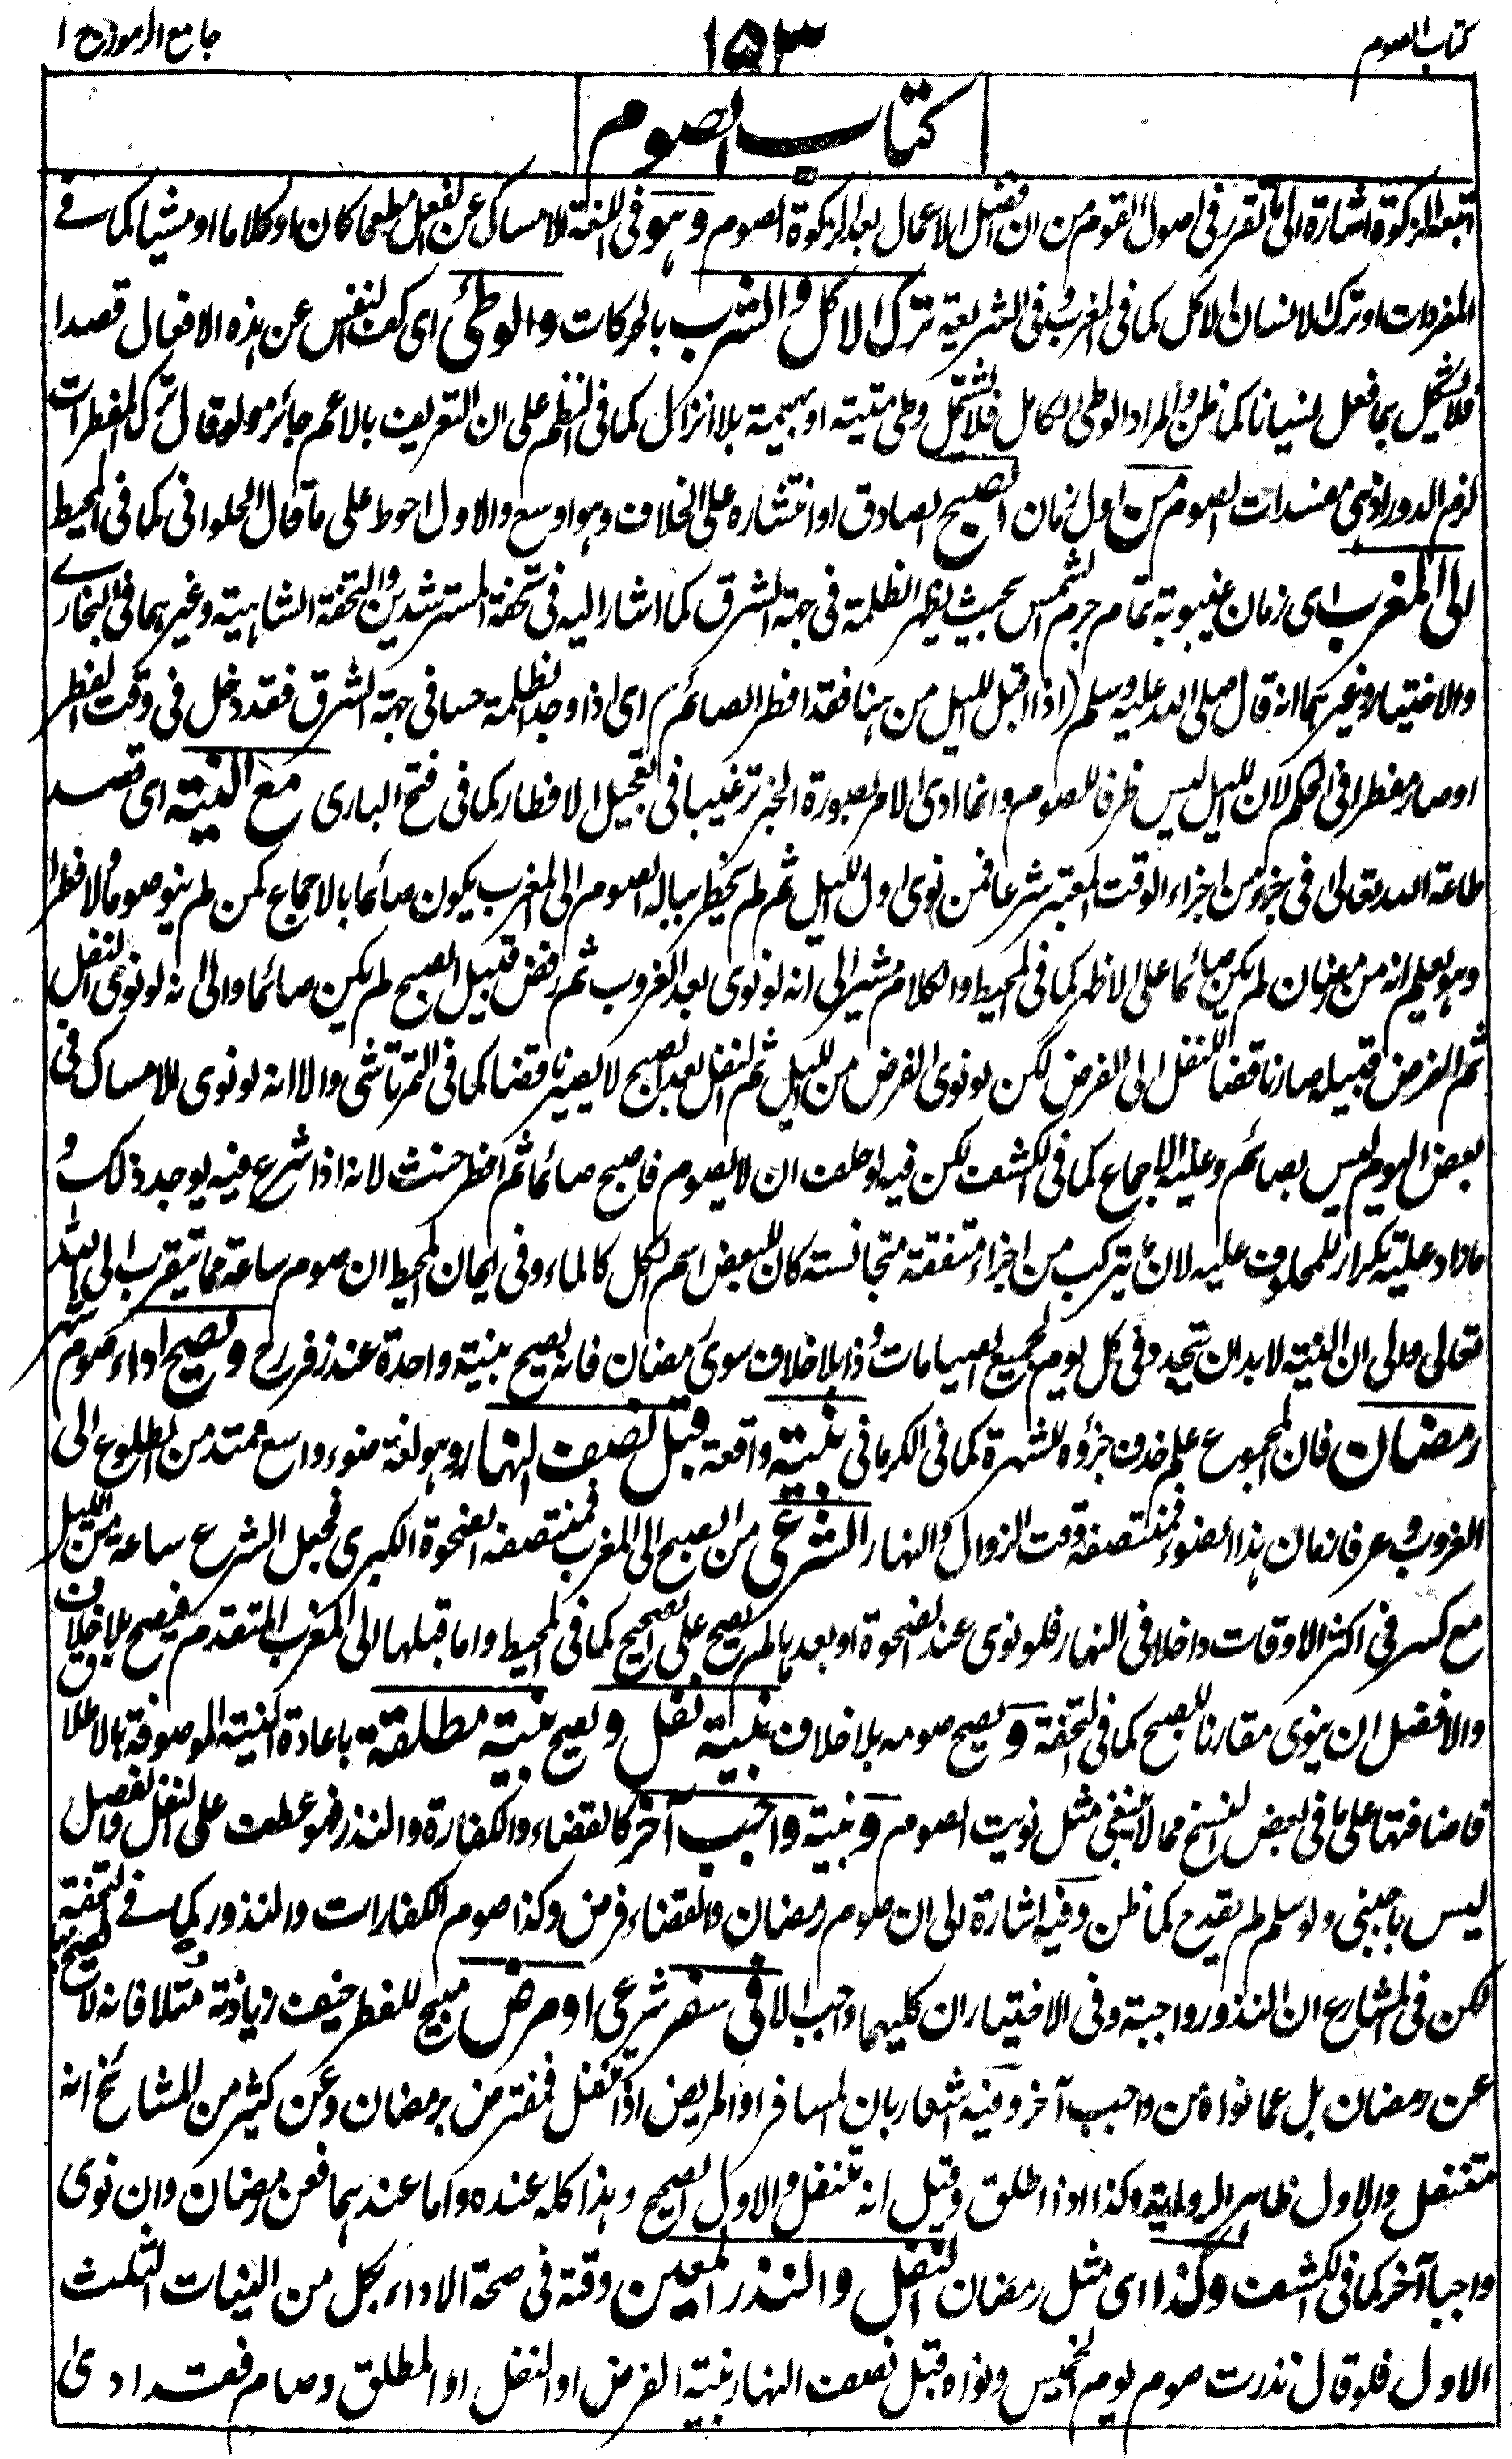 كتاب الصوم ١٥٣ جامع الرموز ج ١
كتاب الصوم
اتبعه الزكوة اشارة الى ما تقرر فى اصول القوم من ان افضل الاعمال بعد الزكوة الصوم وهو فى اللغة الامساك عن الفعل مطعما كان او كلاما او مشيا كما فے
المفردات او ترك الانسان الاكل كما فى المغرب وفى الشريعة ترك الاكل والشرب بالحركات والوطئ اى كف النفس عن هذه الافعال قصدا
فلا يشكل بما فعل نسيانا كما ظن والمراد الوطى الكامل فلا يشتمل وطى ميتة او بهيمة بلا انزال كما فى النظم على ان التعريف بالاعم جائز ولو قال ترك المفطرات
لزم الدور اذ هى مفسدات الصوم من اول زمان الصبح الصادق او انتشاره على الخلاف وهو اوسع والاول احوط على ما قال الحلوانى كما فى المحيط
الى المغرب اى زمان غيبوبة تمام جرم الشمس بحيث يظهر الظلمة فى جهة المشرق كما اشار اليه فى تحفة المسترشدين والتحفة الشاهية وغيرهما فى البخارے
والاختيار وغيرهما انه قال صلى الله عليه وسلم (اذا اقبل الليل من هنا فقد افطر الصائم) اى اذا وجد الظلمة حسا فى جهة الشرق فقد دخل فى وقت الفطر
او صار مفطرا فى الحكم لان الليل ليس ظرفا للصوم وانما ادى الامر بصورة الخبر ترغيبا فى تعجيل الافطار كما فى فتح البارى مع النية اى قصد
طاعة الله تعالى فى جزء من اجزاء الوقت المعتبر شرعا فمن نوى اول الليل ثم لم يخطر بباله الصوم الى المغرب يكون صائما بالاجماع كمن لم ينو صوما ولا فطرا
وهو يعلم انه من رمضان لم يكن صائما على الاظهر كما فى المحيط والكلام مشير الى انه لو نوى بعد الغروب ثم رفض قبيل الصبح لم يكن صائما والى انه لو نوى النفل
ثم الفرض قبيله صار ناقضا للنفل الى الفرض لكن لو نوى الفرض من الليل ثم النفل بعد الصبح لا يصير ناقضا كما فى التمرتاشى والا انه لو نوى الامساك فى
بعض اليوم ليس بصائم وعليه الاجماع كما فى الكشف لكن فيه لو حلف ان لا يصوم فاصبح صائما ثم افطر حنث لانه اذا شرع فيه يوجد ذلك و
مازاد عليه تكرار للمحلوف عليه لان ما يتركب من اجزاء متفقة متجانسة كان للبعض اسم الكل كالماء وفى ايمان المحيط ان صوم ساعة مما يتقرب الى الله
تعالى والى ان النية لا بد ان تجدد فى كل يوم لجميع الصيامات وذا بلا خلاف سوى رمضان فانه يصح بنية واحدة عند زفر رح ويصح اداء صوم شهر
رمضان فان المجموع علم حذف جزؤه للشهرة كما فى الكرمانى بنية واقعة قبل نصف النهار وهو لغة ضوء واسع ممتد من الطلوع الى
الغروب وعرفا زمان هذا الضوء فمنتصفه وقت الزوال والنهار الشرعى من الصبح الى المغرب فمنتصفه الضحوة الكبرى فجعل الشرع ساعة من الليل
مع كسر فى اكثر الاوقات داخلا فى النهار فلو نوى عند الضحوة او بعدها لم يصح على الصحيح كما فى المحيط واما قبلها الى المغرب المتقدم فيصح بلا خلاف
والافضل ان ينوى مقارنا للصبح كما فى التحفة و يصح صومه بلا خلاف بنية نفل ويصح بنية مطلقة باعادة النية الموصوفة بالاطلاق
فاضافتها على ما فى بعض النسخ مما لا ينبغى مثل نويت الصوم وبنية واجب آخر كالقضاء والكفارة والنذر فهو عطف على النفل والفصل
ليس باجنبى ولو سلم لم يقدح كما ظن وفيه اشارة الى ان صوم رمضان والقضاء فرض وكذا صوم الكفارات والنذور كما فے التحفة
لكن فى المشارع ان النذور واجبة وفى الاختيار ان كليهما واجب الا فى سفر شرعى او مرض مبيح للفطر خيف زيادته مثلا فانه لا يصح بها
عن رمضان بل عما نواه من واجب آخر وفيه اشعار بان المسافر او المريض اذا تنفل فمفترض برمضان وعن كثير من المشائخ انه
متنفل والاول ظاهر الرواية وكذا اذا اطلق وقيل انه متنفل والاول الصحيح وهذا كله عنده واما عندهما فعن رمضان وان نوى
واجبا آخر كما فى الكشف وكذا اى مثل رمضان النفل والنذر المعين وقته فى صحة الاداء بكل من النيات الثلث
الاول فلو قال نذرت صوم يوم الخميس ونواه قبل نصف النهار بنية الفرض او النفل او المطلق وصام فقد ادى